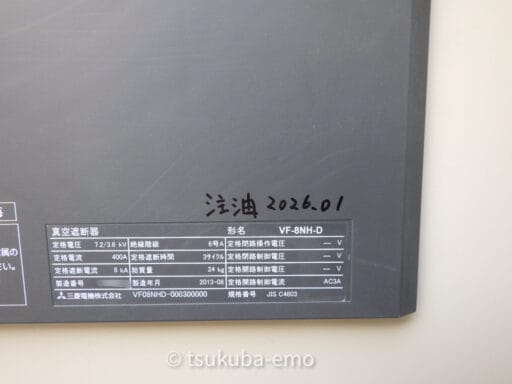 注油 2026.01
真空遮断器 形名 VF-8NH-D
定格電圧 7.2/3.6 kV 絶縁階級 6号A 定格閉路操作電圧 — V
定格電流 400A 定格遮断時間 3サイクル 定格閉路制御電圧 — V
定格遮断電流 8 kA 総質量 24 kg 定格開路制御電圧 — V
製造番号 製造年月 2013-06 定格開路制御電流 AC3A
三菱電機株式会社 VF08NHD-000300000 規格番号 JIS C4603
属の
さい。
© tsukuba-emo